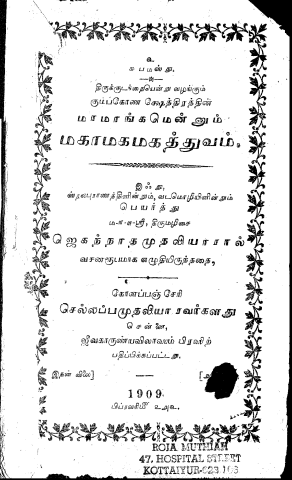 உ
சுபமஸ்து.
திருக்குடந்தையென்று வழங்கும்
கும்பகோண க்ஷேத்திரத்தின்
மாமாங்கமென்னும்
மகாமகமகத்துவம்,
இஃது,
வடமொழியினின்றும்
பெயர்த்து
ம-௱-௱-ஸ்ரீ, திருமழிசை
ஜெகந்நாதமுதலியாரால்
வசனரூபமாக எழுதியிருந்ததை,
கோளப்பஞ் சேரி
செல்லப்பமுதலியா ரவர்களது
சென்னை,
ஜீவகாருண்யவிலாஸம் பிரஸிற்
பதிப்பிக்கப்பட்டது.
இதன் விலை]
1909
பிப்ரவரிமீ
ROJA MUTHIAH
47, HOSPITAL STREET
KOTTAIYUR-623 106